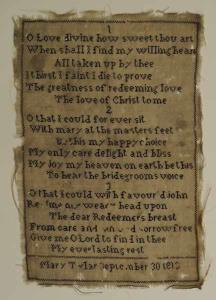 1
O Love divine how sweet thou art
When shall I find my willing hear
All taken up by thee
I thirst I faint I die to prove
The greatness of redeeming love
The love of Christ to me
2
O that I could for ever sit
With mary at the masters feet
this my happy choice
My only care delight and bliss
My joy my heaven on earth be this
To hear the bridegrooms voice
3
O that I could with favourd John
weary head upon
The dear Redeemers breast
From care and sorrow free
Give me O Lord to find in thee
My everlasting rest
Mary September 30